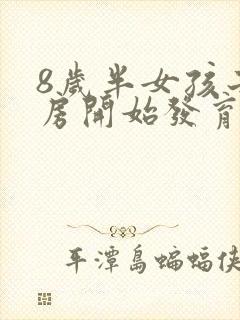 8歲半女孩
房開始發育
平潭島蝙蝠俠